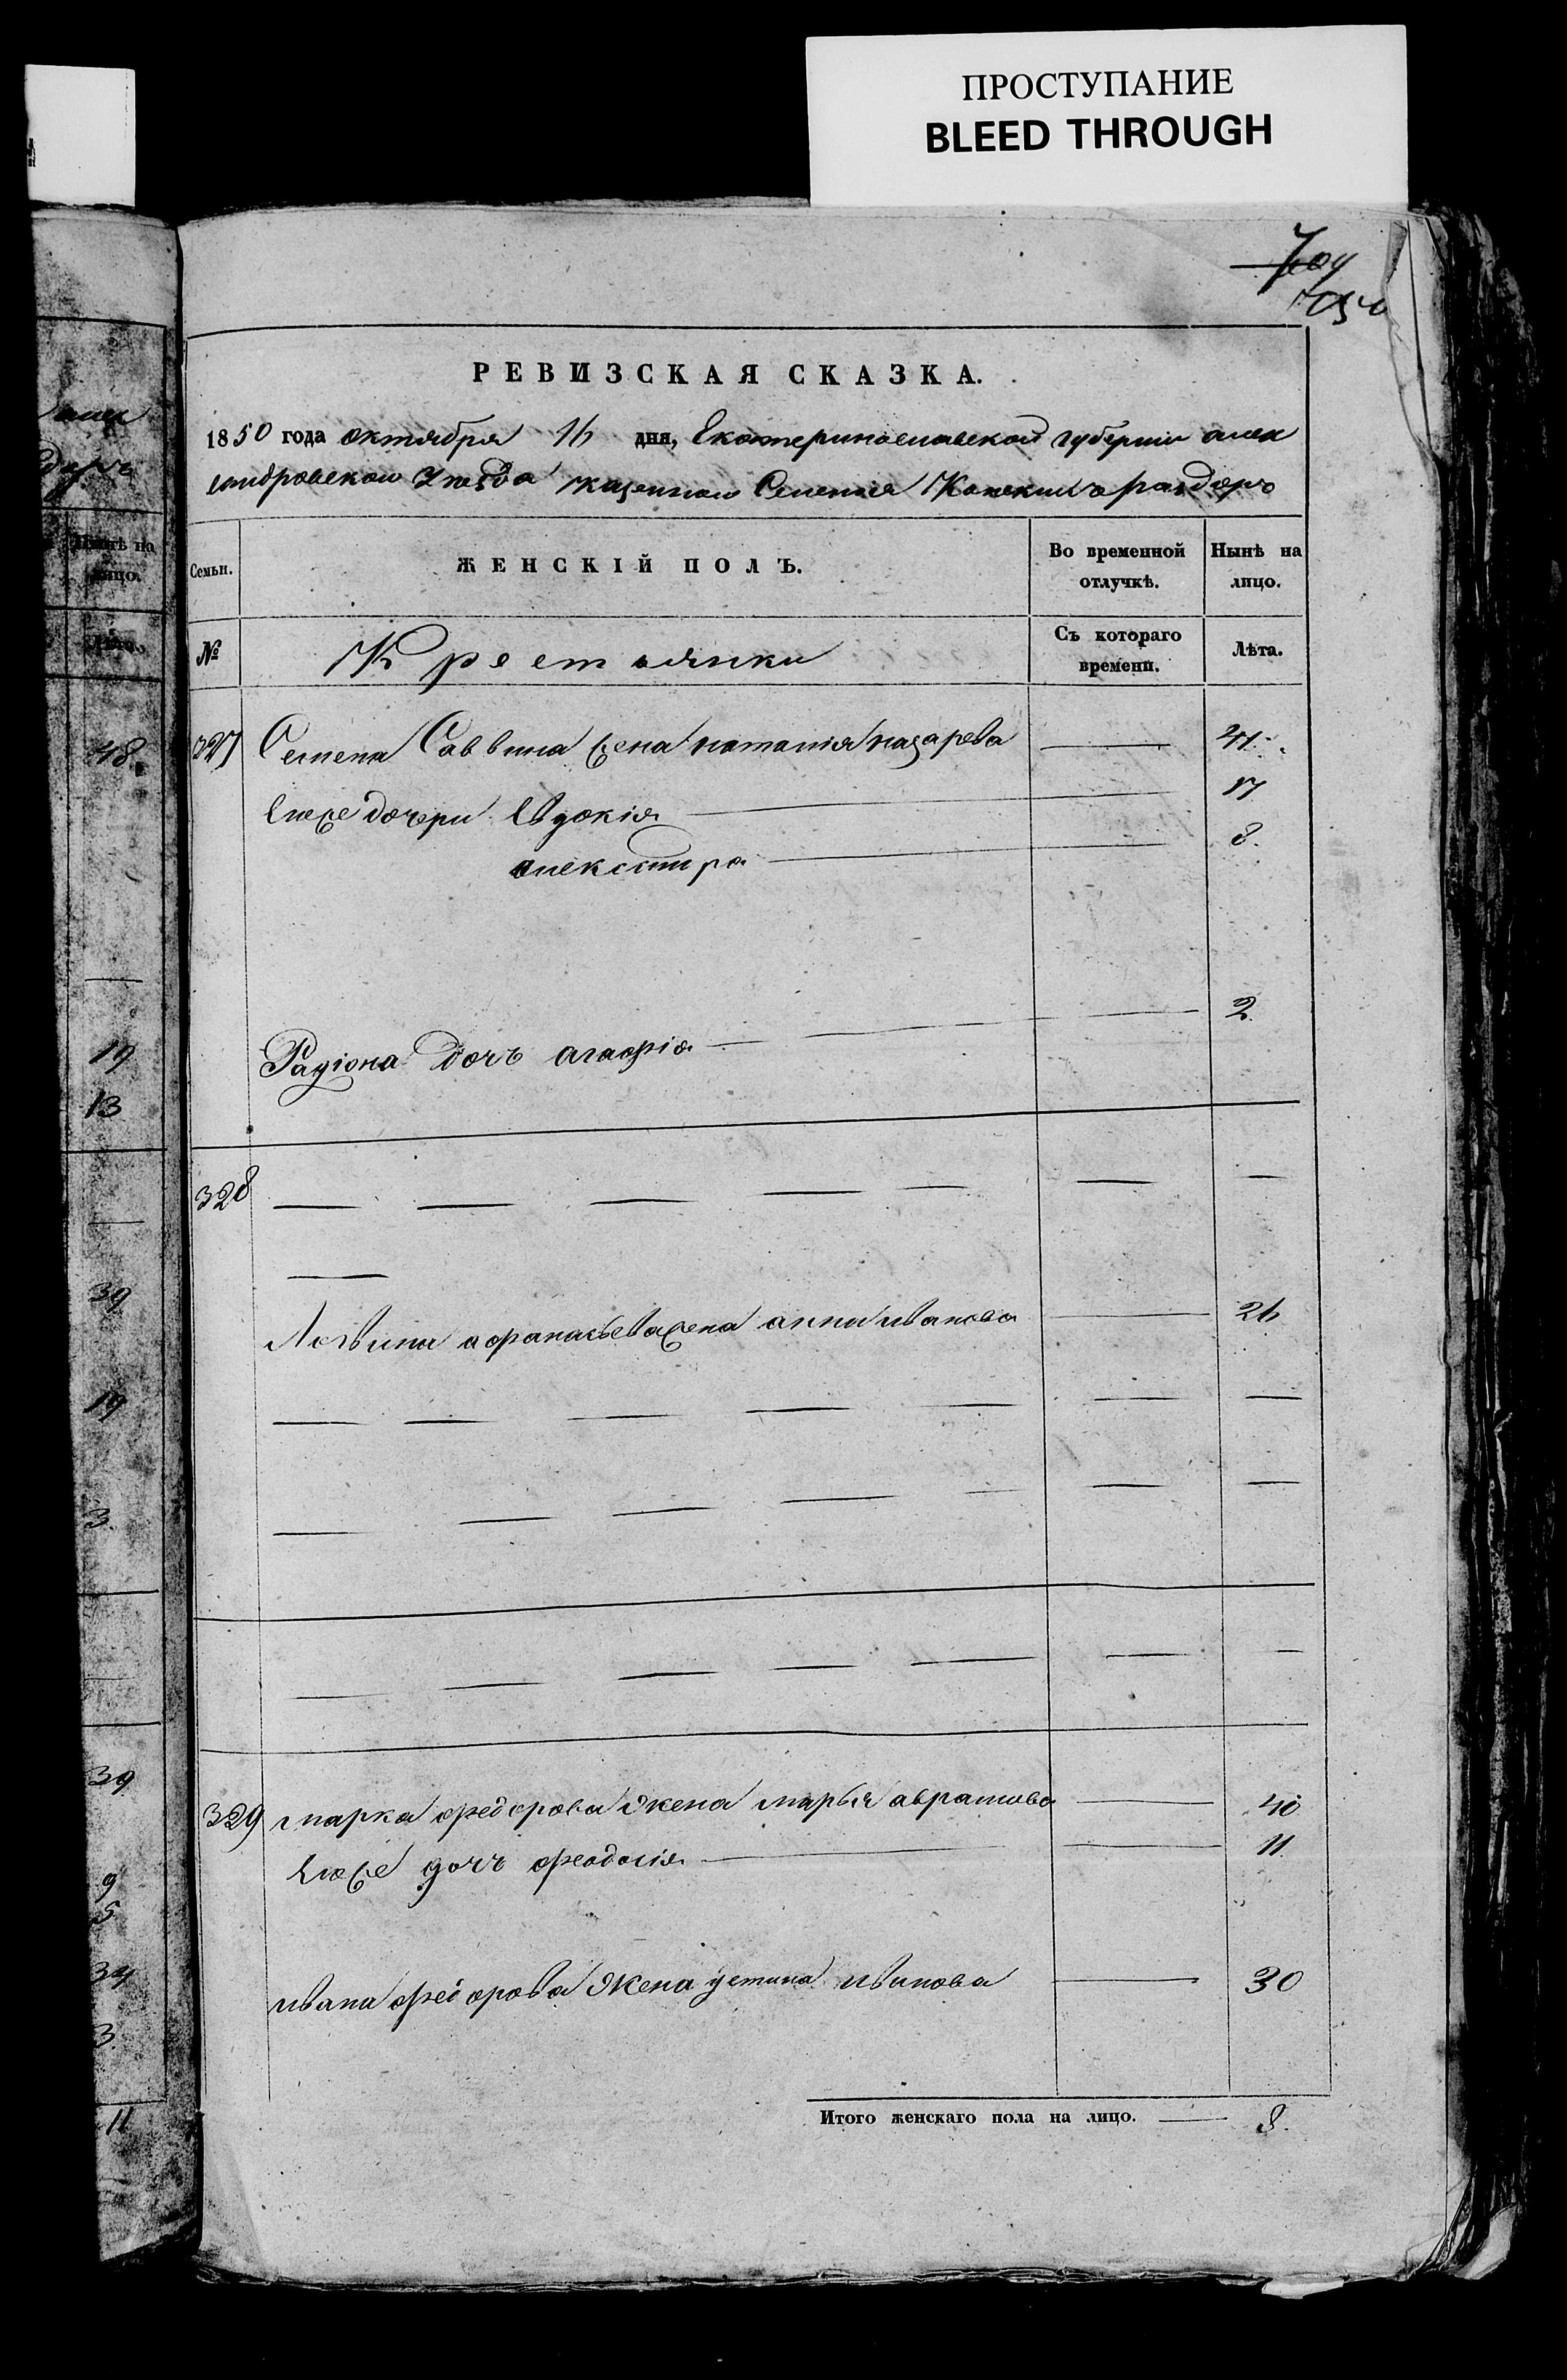 ПРОСТУПАНИЕ
BLEED THROUGH
РЕВИЗСКАЯ СКАЗКА.
1850 года октября 16 дня, Екатеринославской губернии алек
сандровскои Уезда казенного Селения Конскихъ раздоръ
Семьи. ЖЕНСКІЙ ПОЛЪ. Во временной отлучкѣ. Нынѣ на лицо.
№ Крестьянки Съ котораго времени. Лѣта.
327 Семена Саввина жена наталія назарова 41.
Eгоже дочери Евдокія 17
александра 8.
Радіона дочъ агафія 2.
328
Логвина афанасьева жена анна иванова 26
329 марка федорова жена марья аврамова 40
Егоже дочъ феодосія 11.
ивана федорова жена устина иванова 30
Итого женскаго пола на лицо. 8.
48.
19
13
39
19
3.
39
9
5
34
3.
11